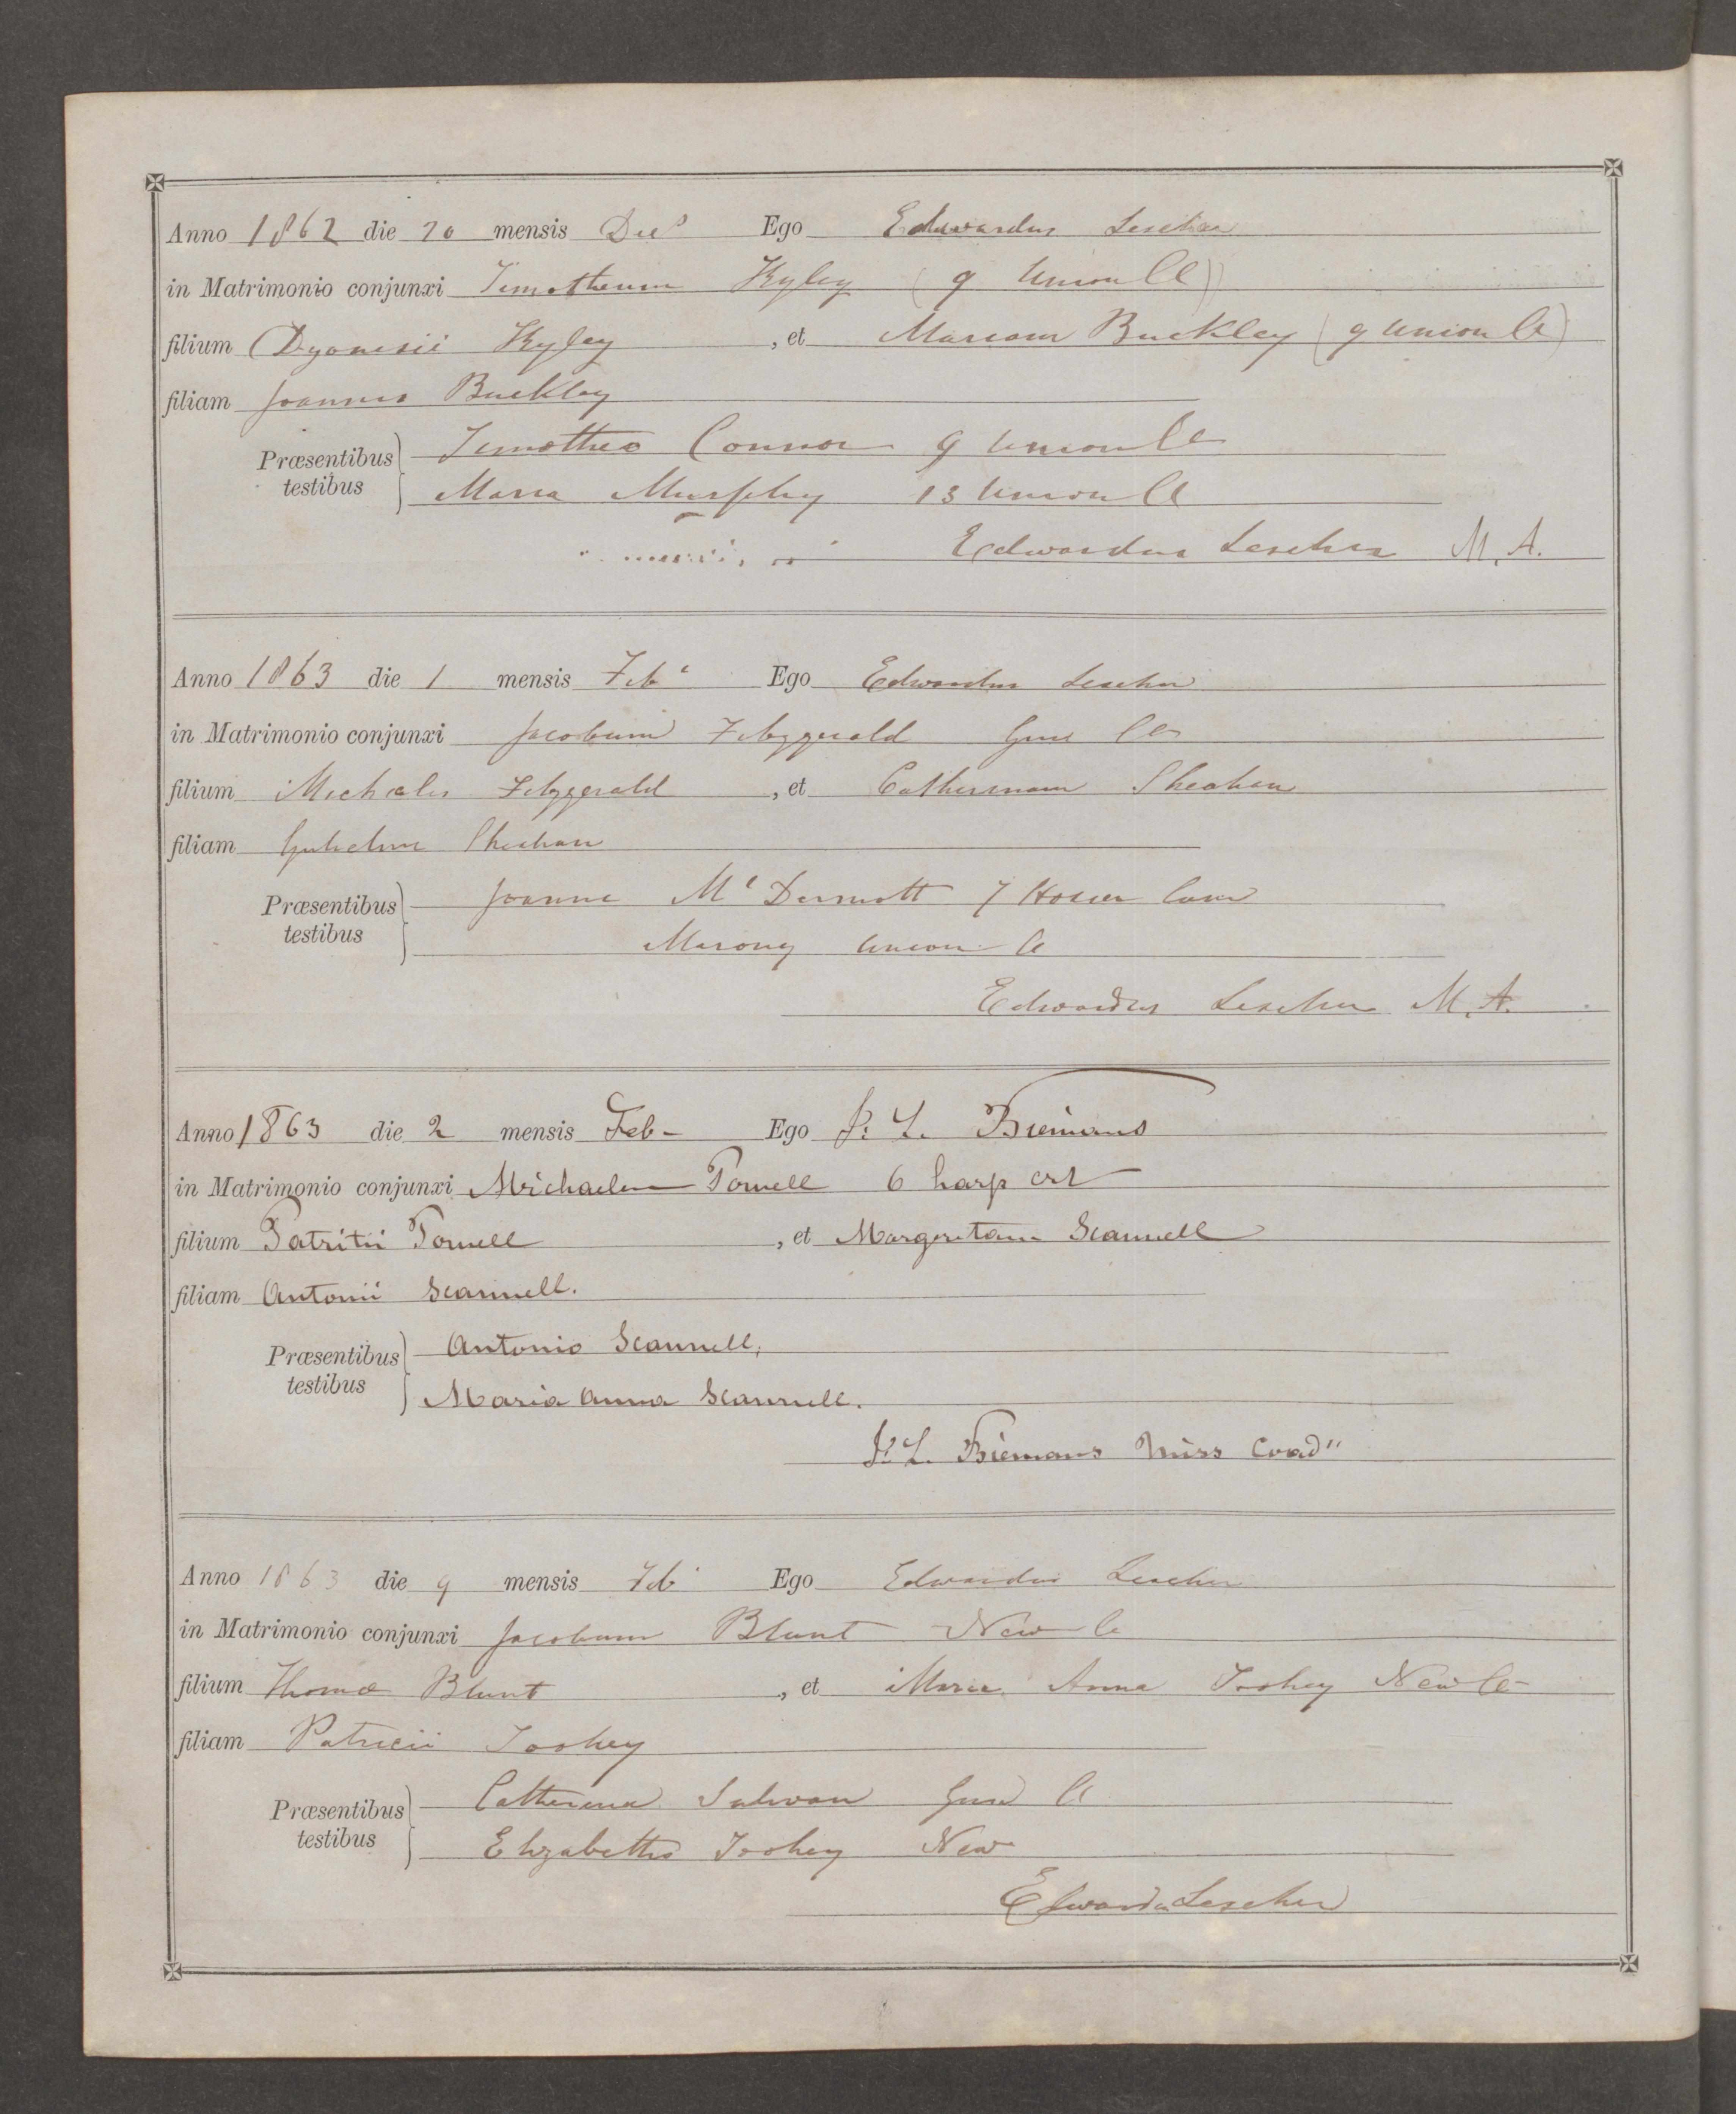 Anno 1862 die 20 mensis Decr Ego Edwardus Lescher
in Matrimonio conjunxi Timotheum Kyley (9 Union Ct)
filium Dyonisii Kyley , et Mariam Buckley (9 Union Ct)
filiam Joannis Buckley
Præsentibus testibus Timotheo Connor 9 Union Ct
Maria Murphy 13 Union Ct
Edwardus Lescher M. A.
Anno 1863 die 1 mensis Feb Ego Edwardus Lescher
in Matrimonio conjunxi Jacobum Fitzgerald Gun Ct
filium Michaelis Fitzgerald , et Catherinam Sheahan
filiam Gulielmi Sheehan
Præsentibus testibus Joanne Mc Dermott 7 Hosier Lane
Union Ct
Edwardus Lescher M. A.
Anno 1863 die 2 mensis Feb- Ego P. L. Biemans
in Matrimonio conjunxi Michaelem Powell 6 harp crt
filium Patritii Powell , et Margeretam Scannell
filiam Antonii Scannell.
Præsentibus testibus Antonio Scannell,
Maria Anna Scannell.
P. L. Biemans Miss Coad"
Anno 1863 die 9 mensis Feb Ego Edwardus Lescher
in Matrimonio conjunxi Jacobum Blunt New Ct
filium Thomæ Blunt , et Maria Anna Toohey New Ct
filiam Patricii Toohey
Præsentibus testibus Catherina Sulivan Gun Ct
Elizabetha Toohey New
Edwardus Lescher